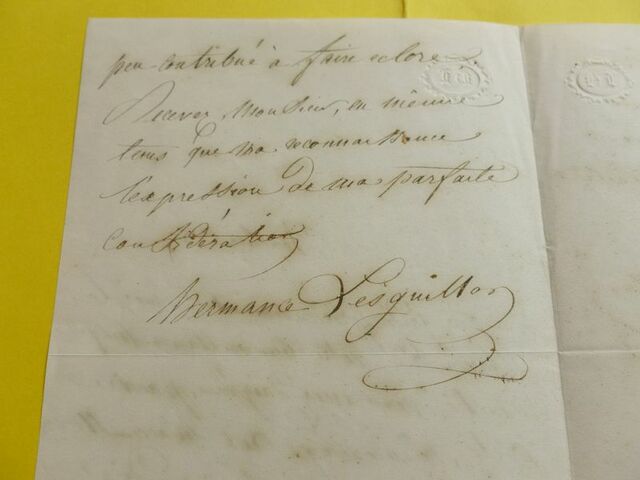 peu contribué à faire eclore
Recevez, Monsieur, en même
tems que ma reconnaissance
l'expression de ma parfaite
considération
Hermance Lesguillon